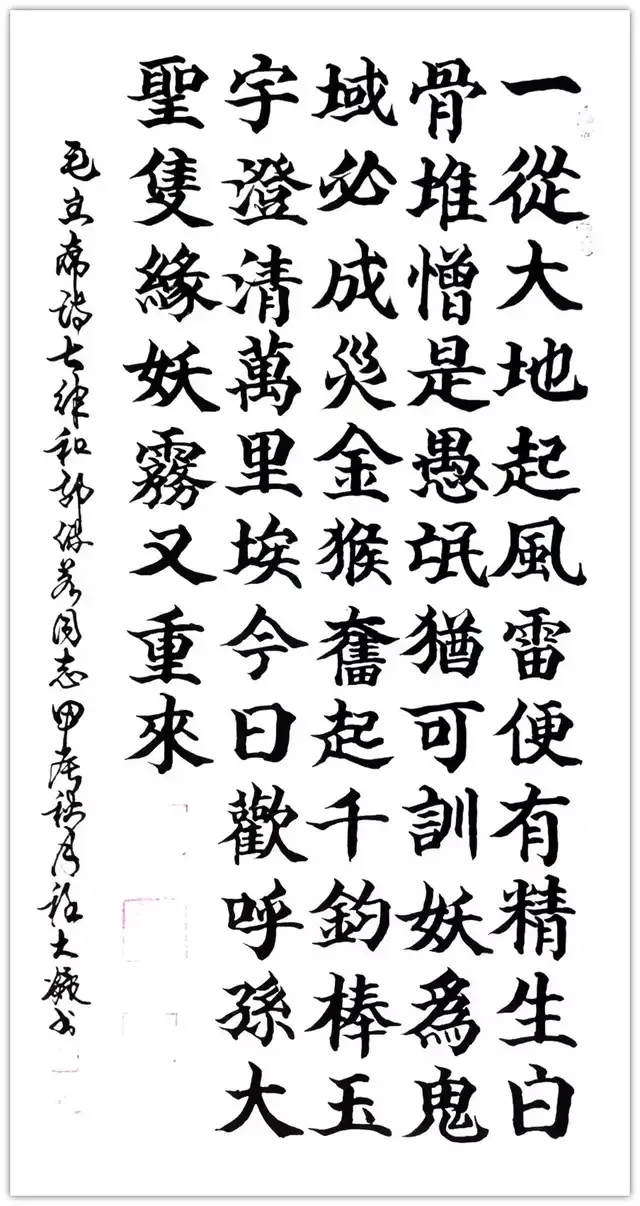 一從大地起風雷便有精生白
骨堆憎是愚氓猶可訓妖為鬼
域必成災金猴奮起千鈞棒玉
宇澄清萬里埃今日歡呼孫大
聖隻緣妖霧又重來
毛主席詩七律和郭沫若同志甲秋月大書